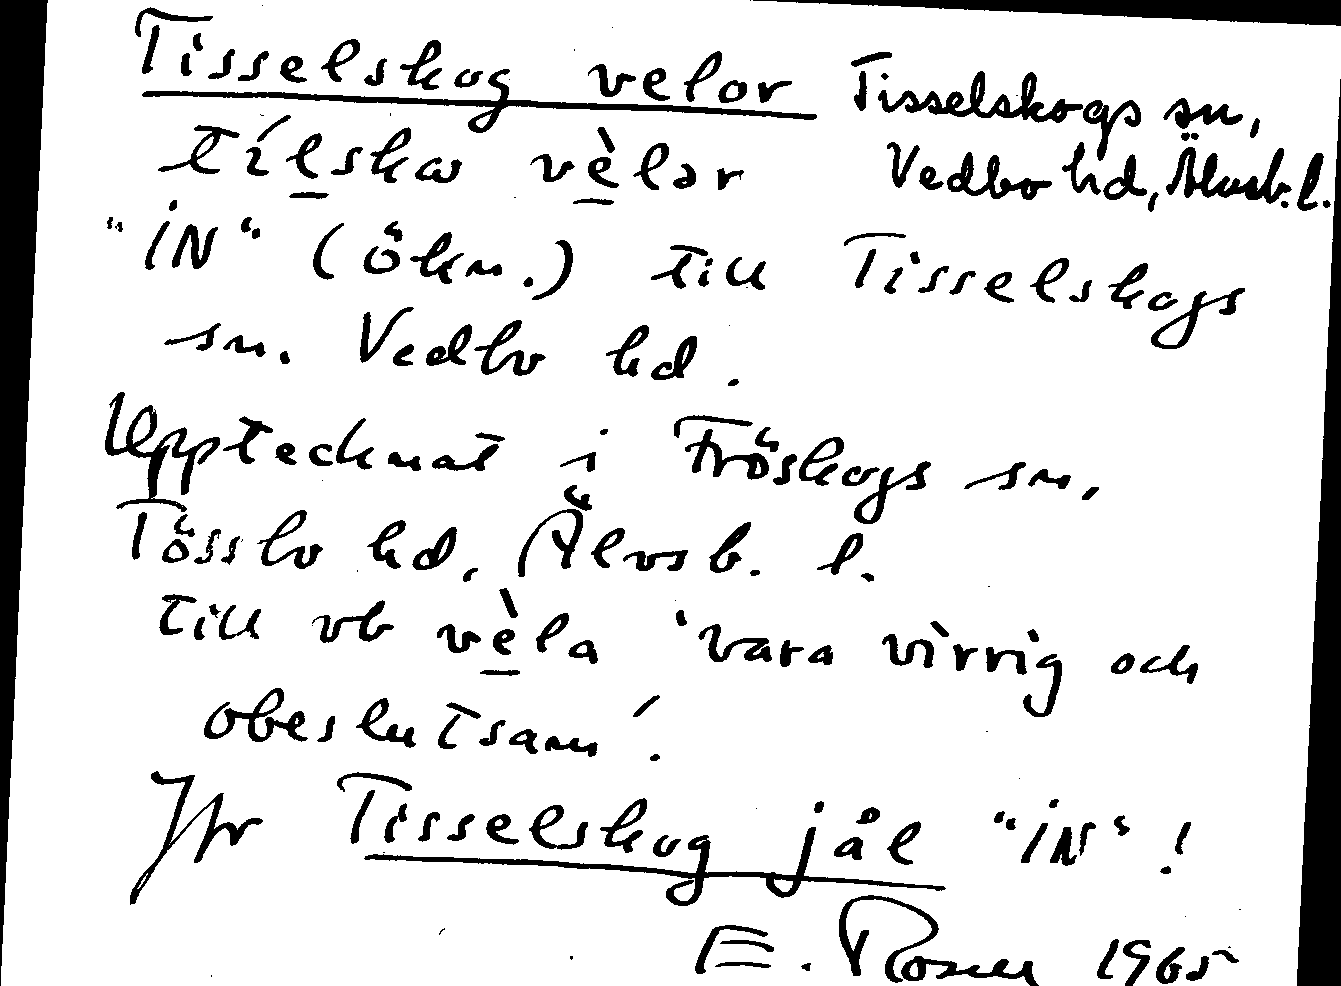 Tisselskog velor Tisselskogs sn,
tíl̲skω vè̲lər Vedbo hd, Älvsb. l.
"iN" (ökn.) till Tisselskogs
sn. Vedbo hd.
Upptecknat i Fröskogs sn,
Tössbo hd, Älvsb. l.
till vb vè̲la 'vara virrig och
obeslutsam'.
Jfr Tisselskog jål "iN"!
E. Rosell 1965